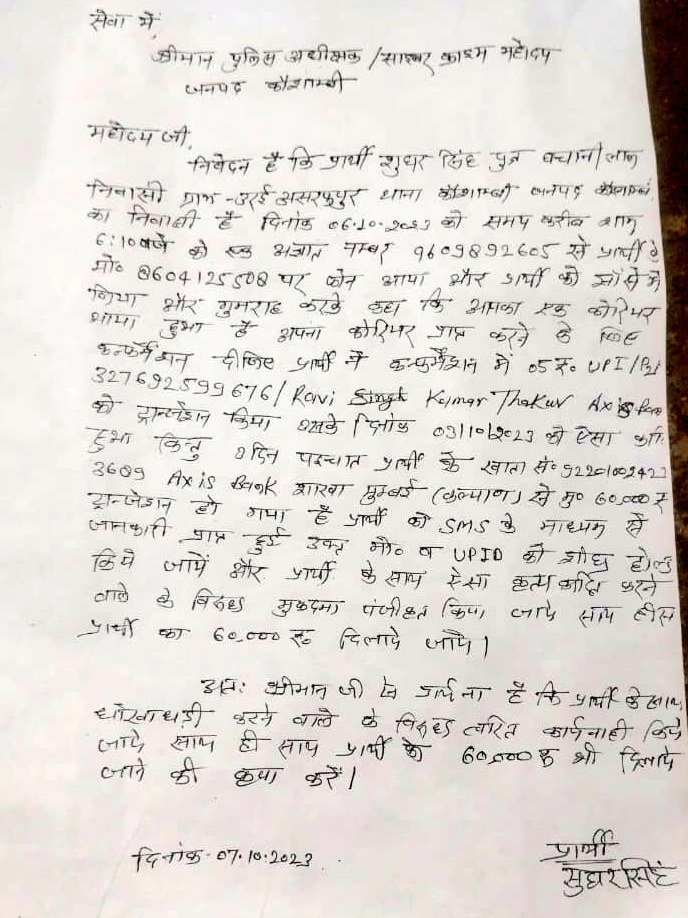 सेवा में,
श्रीमान पुलिस अधीक्षक / साइबर क्राइम महोदय
जनपद कौशाम्बी
महोदय जी,
निवेदन है कि प्रार्थी सुघर सिंह पुत्र वचानी लाल
निवासी ग्राम - उरई असरफपुर थाना कौशाम्बी जनपद कौशाम्बी
का निवासी है दिनांक 06.10.2023 को समय करीब शाम
6:10 बजे को एक अज्ञात नम्बर 9609892605 से प्रार्थी के
मो० 8604125508 पर फोन आया और प्रार्थी को झाँसे में
लिया और गुमराह करके कहा कि आपका एक कोरियर
आया हुआ है अपना कोरियर प्राप्त करने के लिए
कन्फर्मेशन दीजिए प्रार्थी ने कन्फर्मेशन में 05 रु० UPI/
327692599676/ Ravi Kumar Thakur Axis Bank
को ट्रान्जेशन किया इसके दिनांक 03/10/2023 को ऐसा
हुआ किन्तु दिन पश्चात प्रार्थी के खाता सं० 9220100242
3609 Axis Bank शाखा मुम्बई (कल्याण) से मु० 60,000 रु
ट्रान्जेशन हो गया है प्रार्थी को SMS के माध्यम से
जानकारी प्राप्त हुई उक्त मो० व UPID को शीघ्र होल्ड
किये जायें और प्रार्थी के साथ ऐसा कृत्य कारित करने
वाले के विरुद्ध मुकदमा पंजीकृत किया जाये साथ ही साथ
प्रार्थी का 60,000 रु० दिलाये जायें।
अतः श्रीमान जी से प्रार्थना है कि प्रार्थी के साथ
धोखाधड़ी करने वाले के विरुद्ध त्वरित कार्यवाही किये
जाये साथ ही साथ प्रार्थी के 60,000 रु भी दिलाये
जाने की कृपा करें।
दिनांक - 07.10.2023
प्रार्थी
सुघर सिंह